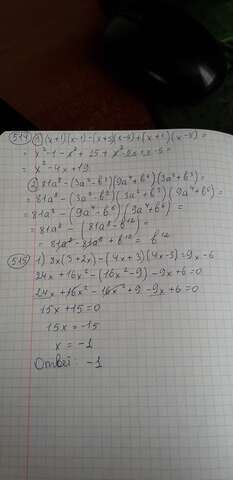 514 1) (x+1)(x-1)-(x+5)(x-5)+(x+1)(x-5)=
= x²-1-x²+25+x²-5x+x-5=
= x²-4x+19
2) 81a⁸-(3a²-b³)(9a⁴+b⁶)(3a²+b³)=
= 81a⁸-(3a²-b³)(3a²+b³)(9a⁴+b⁶)=
= 81a⁸-(9a⁴-b⁶)(9a⁴+b⁶)=
= 81a⁸-(81a⁸-b¹²)=
= 81a⁸-81a⁸+b¹²= b¹²
515 1) 8x(3+2x)-(4x+3)(4x-3)=9x-6
24x+16x²-(16x²-9)-9x+6=0
24x+16x²-16x²+9-9x+6=0
15x+15=0
15x=-15
x=-1
Ответ: -1